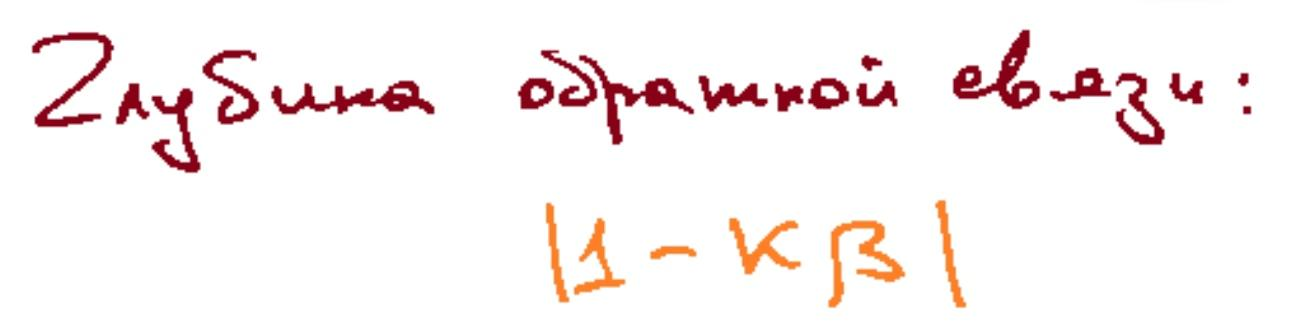 Глубина обратной связи:
|1 - Kβ|